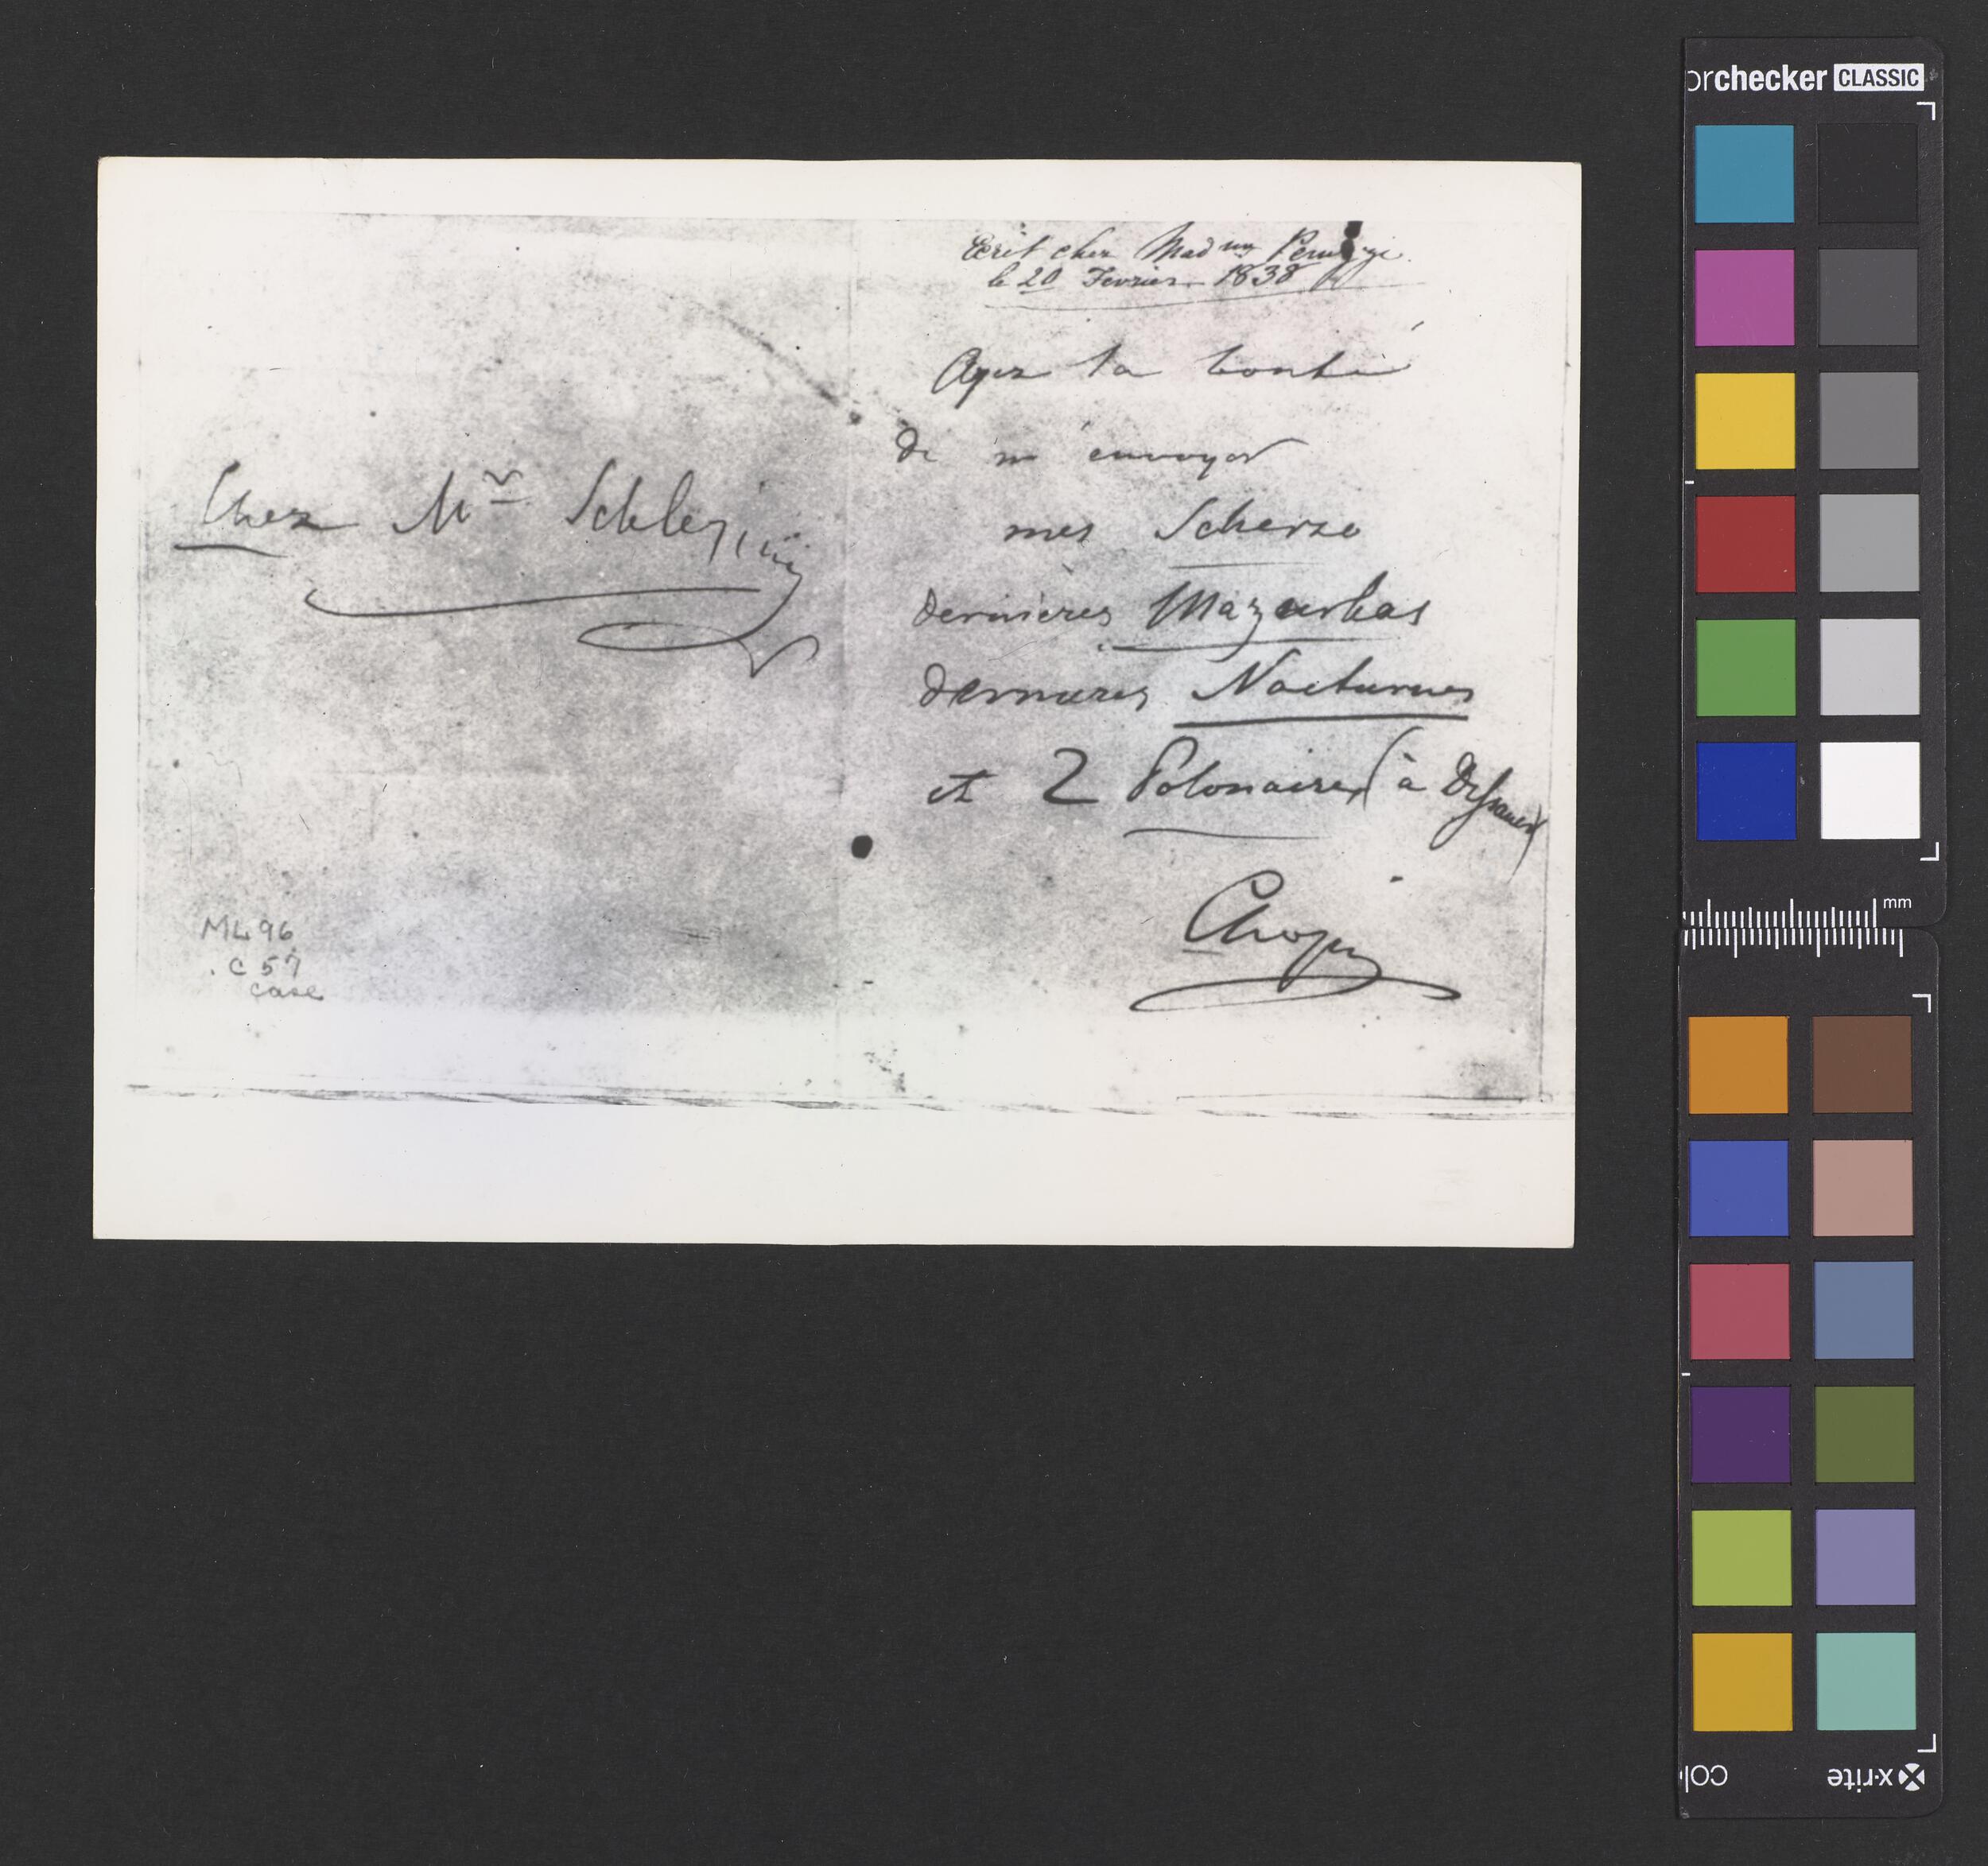 Chez Mr Schlesinger
ML96
.C57
case
Ecrit chez Madme Perugi
le 20 Fevrier 1838
Ayez la bonté
de m'envoyer
mes Scherzo
dernières Mazurkas
dernieres Nocturnes
et 2 Polonaises (à Dessauer)
Chopin
orchecker CLASSIC
mm
col
x-rite